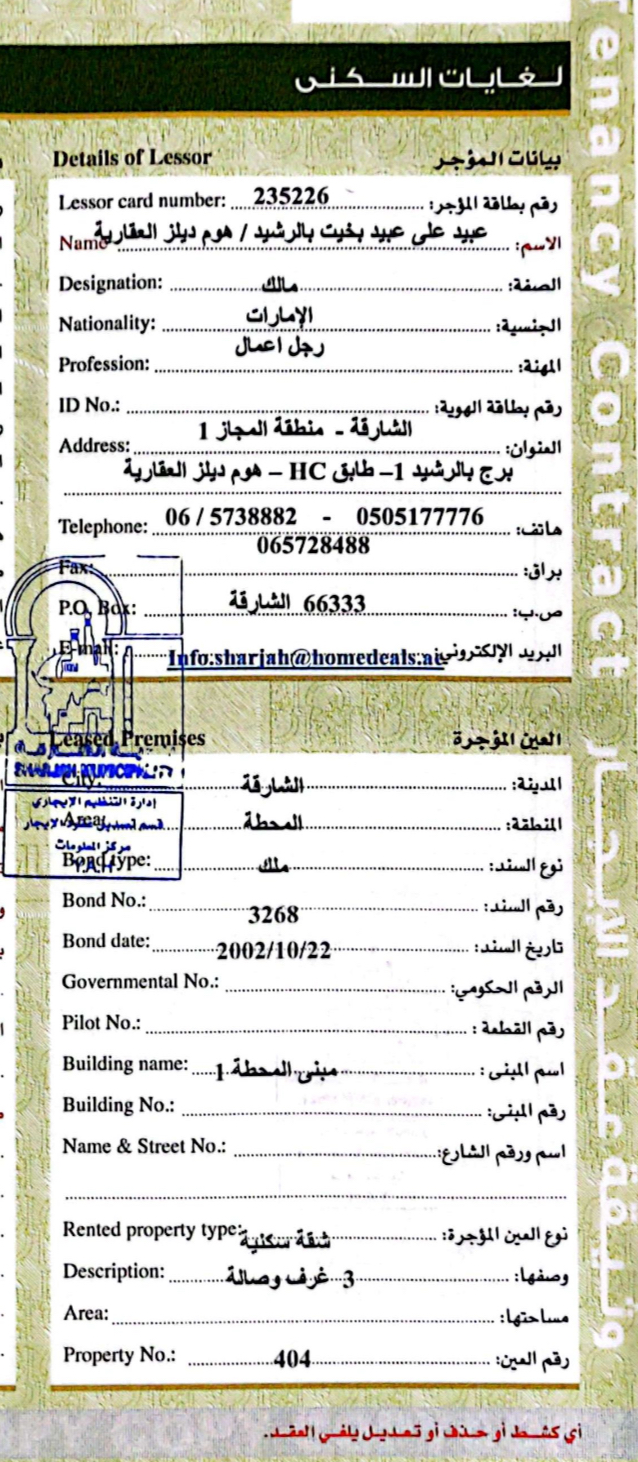 لـغـايـات الســـكـنـى
Details of Lessor بيانات المؤجر
Lessor card number: 235226 رقم بطاقة المؤجر:
Name عبيد على عبيد بخيت بالرشيد / هوم ديلز العقارية الاسم:
Designation: مالك الصفة:
Nationality: الإمارات الجنسية:
Profession: رجل اعمال المهنة:
ID No.: رقم بطاقة الهوية:
Address: الشارقة - منطقة المجاز 1 العنوان:
برج بالرشيد 1– طابق HC – هوم ديلز العقارية
Telephone: 06 / 5738882 - 0505177776 هاتف:
065728488
Fax: براق:
P.O. Box: 66333 الشارقة ص.ب:
E-mail: Info.sharjah@homedeals.ae البريد الإلكتروني:
Leased Premises العين المؤجرة
SHARJAH MUNICIPALITY
City: الشارقة المدينة:
إدارة التنظيم الايجاري
Area: المحطة المنطقة:
مركز المعلومات
Bond type: ملك نوع السند:
Bond No.: 3268 رقم السند:
Bond date: 2002/10/22 تاريخ السند:
Governmental No.: الرقم الحكومي:
Pilot No.: رقم القطعة :
Building name: مبنى المحطة 1 اسم المبنى :
Building No.: رقم المبنى:
Name & Street No.: اسم ورقم الشارع:
Rented property type: شقة سكنية نوع العين المؤجرة:
Description: 3 غرف وصالة وصفها:
Area: مساحتها:
Property No.: 404 رقم العين:
أي كشـط أو حـذف أو تـعـديـل يلغـي العقـد.
Tenancy Contract وثـيـقـة عـقـد الإيـجـار